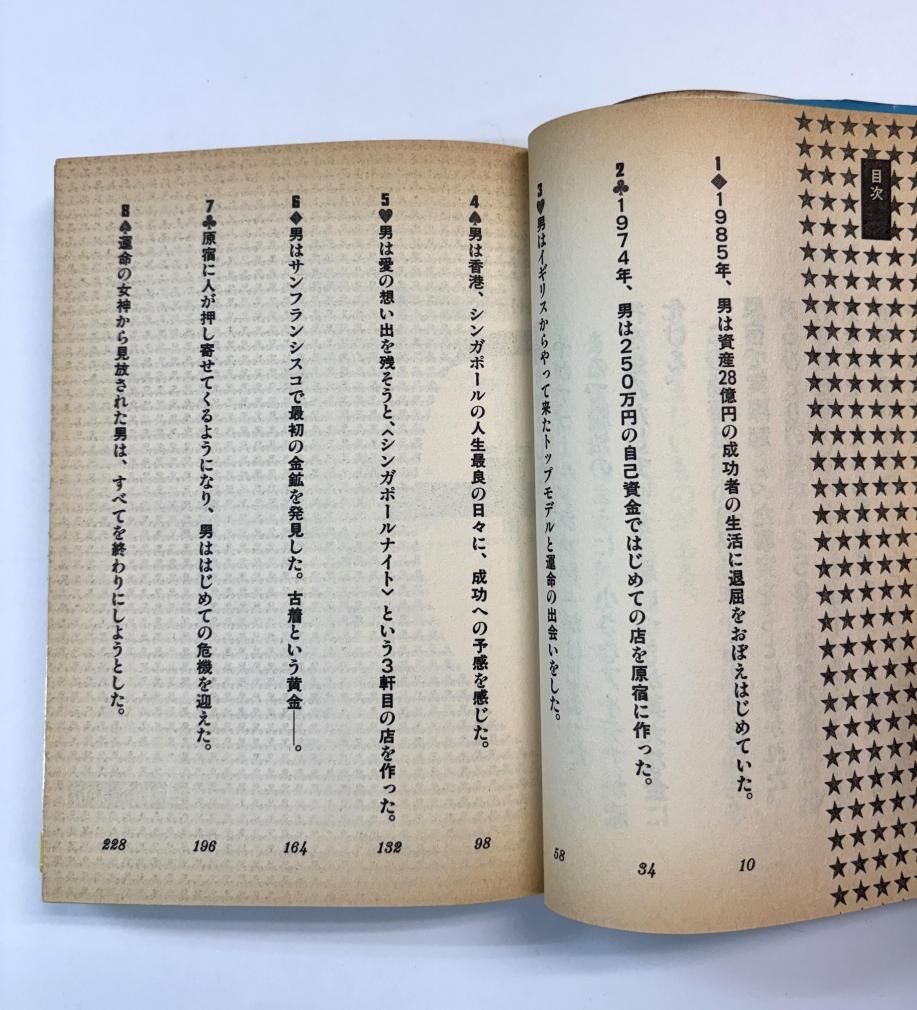 目次
1◆1985年、男は資産28億円の成功者の生活に退屈をおぼえはじめていた。 10
2♣1974年、男は250万円の自己資金ではじめての店を原宿に作った。 34
3♥男はイギリスからやって来たトップモデルと運命の出会いをした。 58
4♠男は香港、シンガポールの人生最良の日々に、成功への予感を感じた。 98
5♥男は愛の想い出を残そうと、〈シンガポールナイト〉という3軒目の店を作った。 132
6◆男はサンフランシスコで最初の金鉱を発見した。古着という黄金──。 164
7♣原宿に人が押し寄せてくるようになり、男ははじめての危機を迎えた。 196
8♠運命の女神から見放された男は、すべてを終わりにしようとした。 228